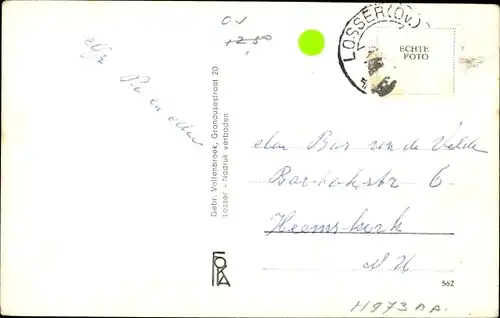 OV
+2,50
LOSSER (Ov.)
ECHTE
FOTO
Pa en
Gebr. Vollenbroek, Gronausestraat 20
Losser - Nadruk verboden
Bar van de Velde
Bartokstr 6
Heemskerk
N H
FOKA
562
H973AA.